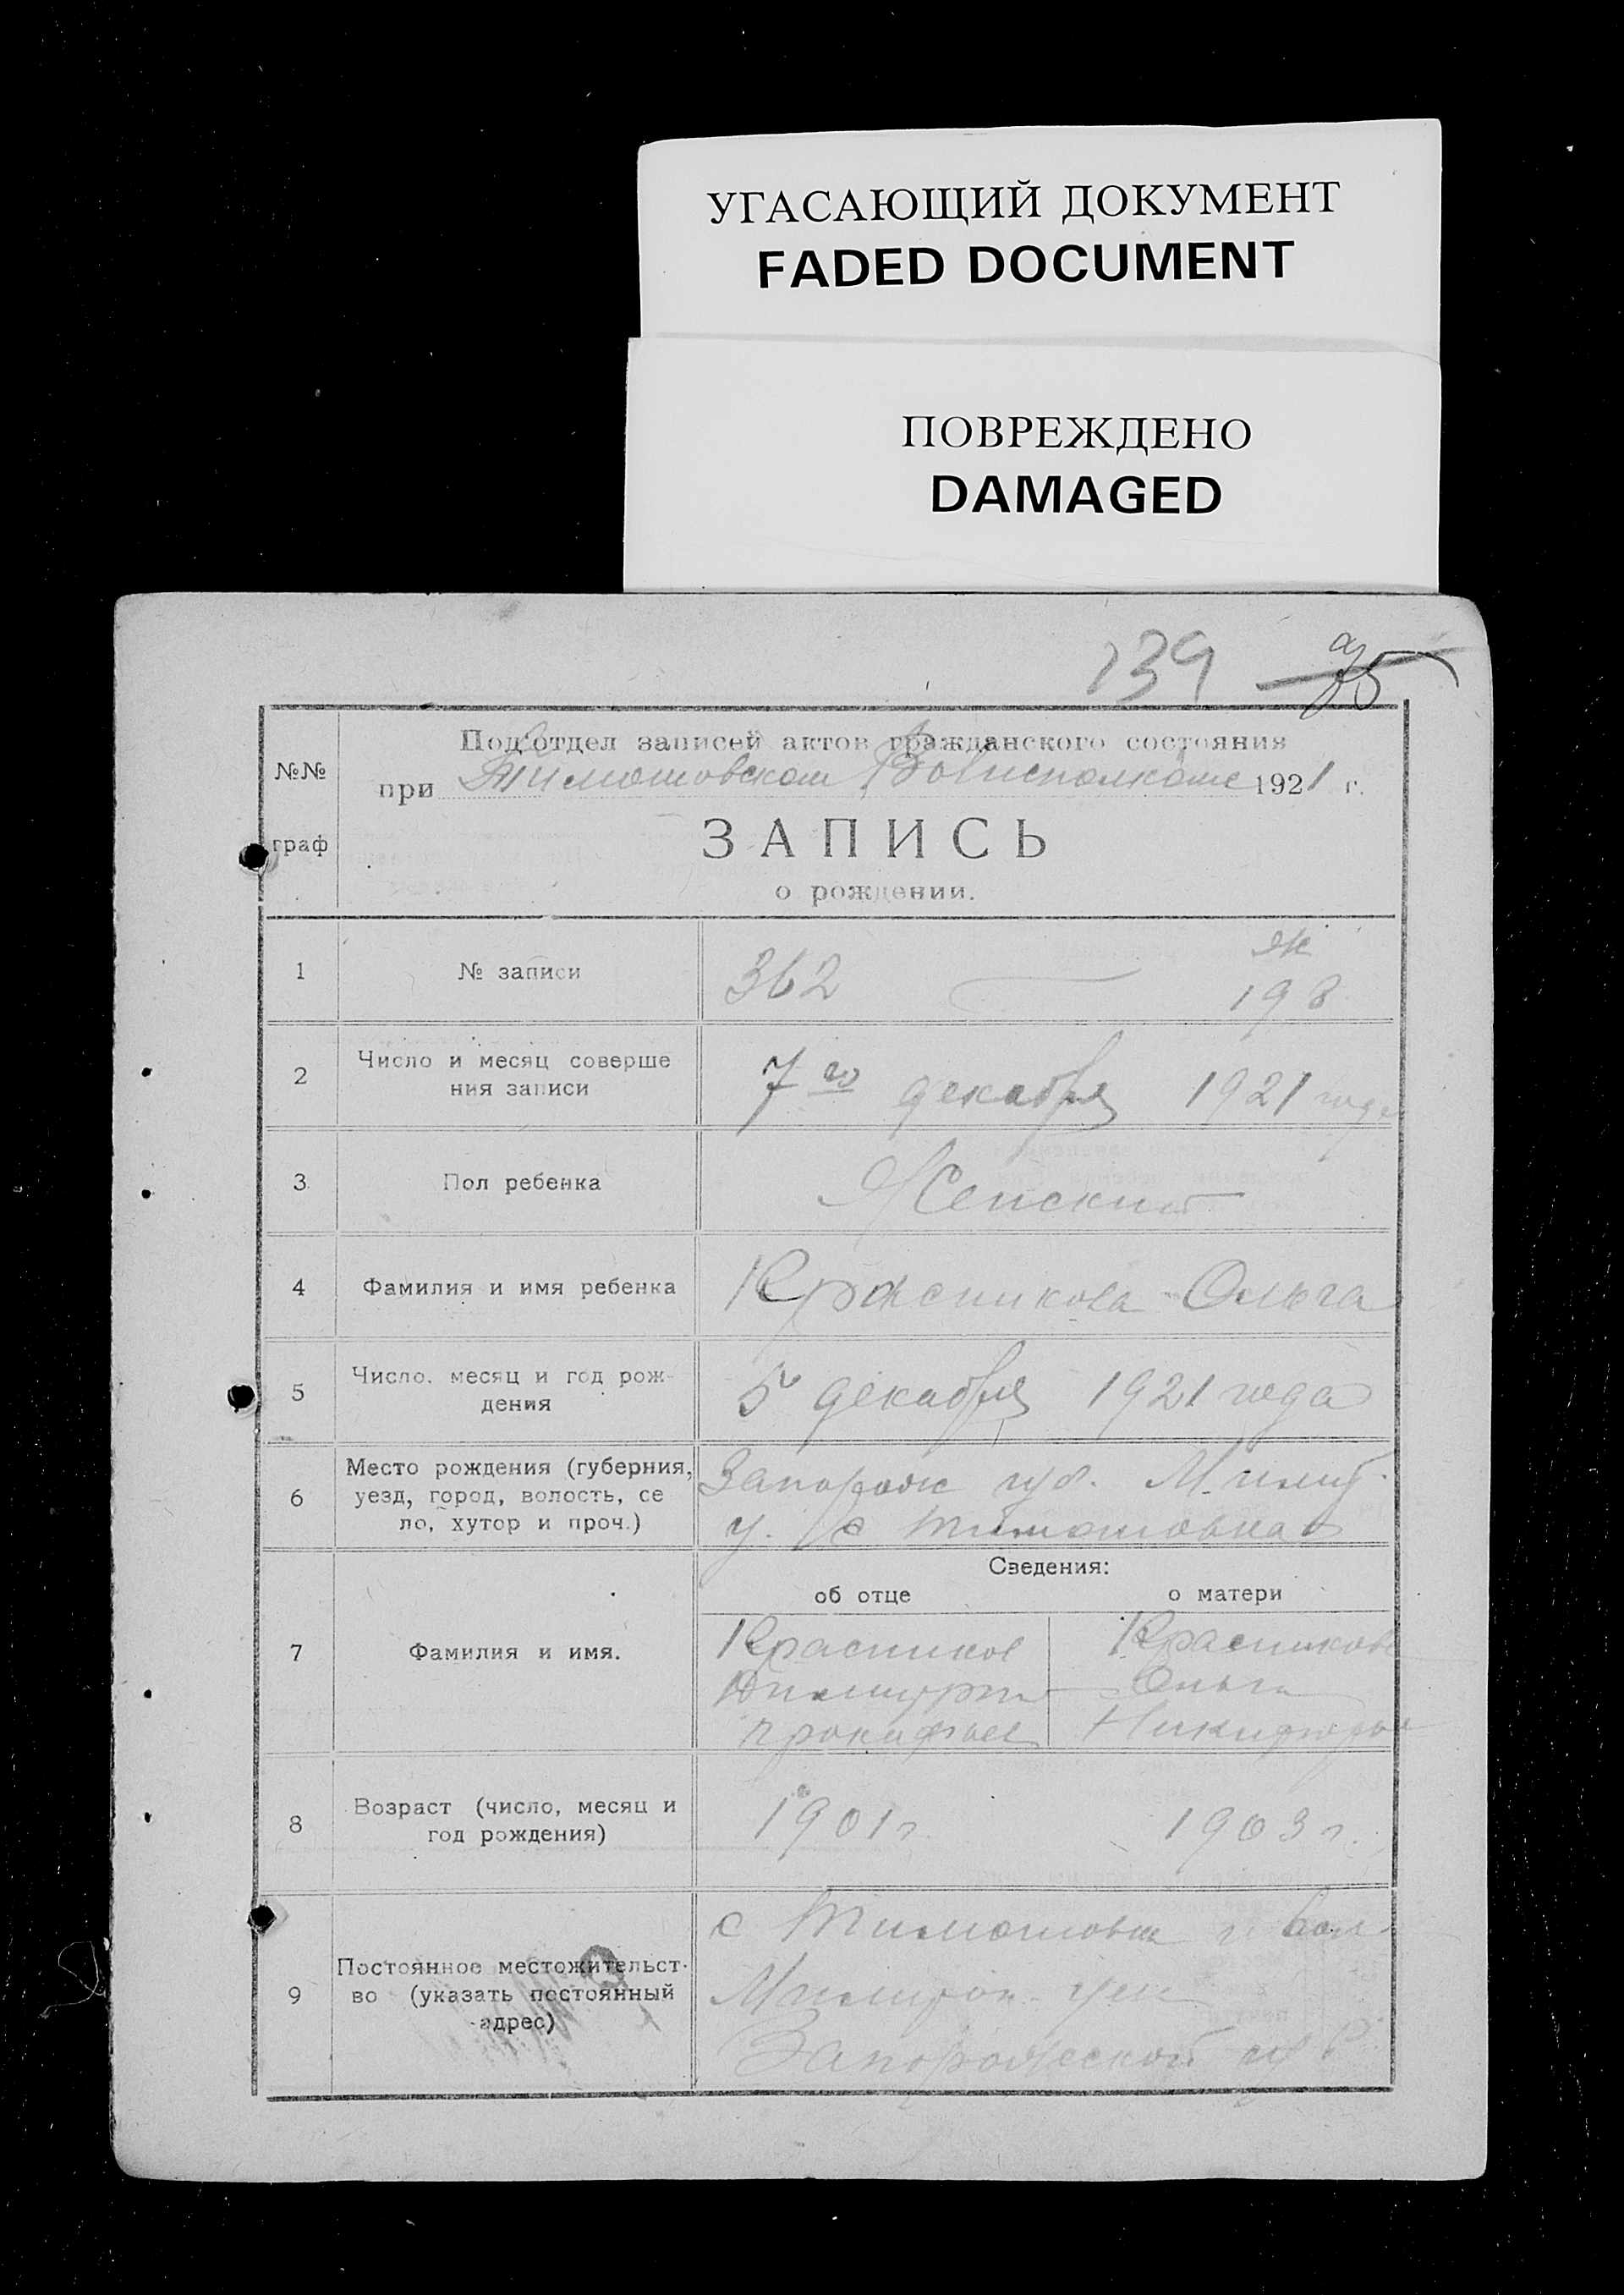 УГАСАЮЩИЙ ДОКУМЕНТ
FADED DOCUMENT
ПОВРЕЖДЕНО
DAMAGED
139
№№
граф
Под'отдел записей актов гражданского состояния
при Тимошовском Волисполкоме 1921 г.
ЗАПИСЬ
о рождении.
1 № записи 362 Ж
198
2 Число и месяц соверше
ния записи
7го декабря 1921 года
3 Пол ребенка Женский
4 Фамилия и имя ребенка Красникова Ольга
5 Число. месяц и год рож-
дения
5 декабря 1921 года
6 Место рождения (губерния,
уезд, город, волость, се
ло, хутор и проч.)
Запорож губ. Мелит.
у. с Тимошовка
Сведения:
об отце о матери
7 Фамилия и имя.
Красников Красникова
Димитрий Ольга
Прокофьев Никифоров
8 Возраст (число, месяц и
год рождения)
1901 г. 1903 г.
9 Постоянное местожительст-
во (указать постоянный
адрес)
с Тимошовка вол
Мелитоп. уез
Запорожской губ